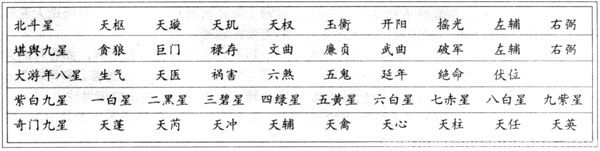 北斗星 天枢 天璇 天玑 天权 玉衡 开阳 摇光 左辅 右弼
堪舆九星 贪狼 巨门 禄存 文曲 廉贞 武曲 破军 左辅 右弼
大游年八星 生气 天医 祸害 六煞 五鬼 延年 绝命 伏位
紫白九星 一白星 二黑星 三碧星 四绿星 五黄星 六白星 七赤星 八白星 九紫星
奇门九星 天蓬 天芮 天冲 天辅 天禽 天心 天柱 天任 天英